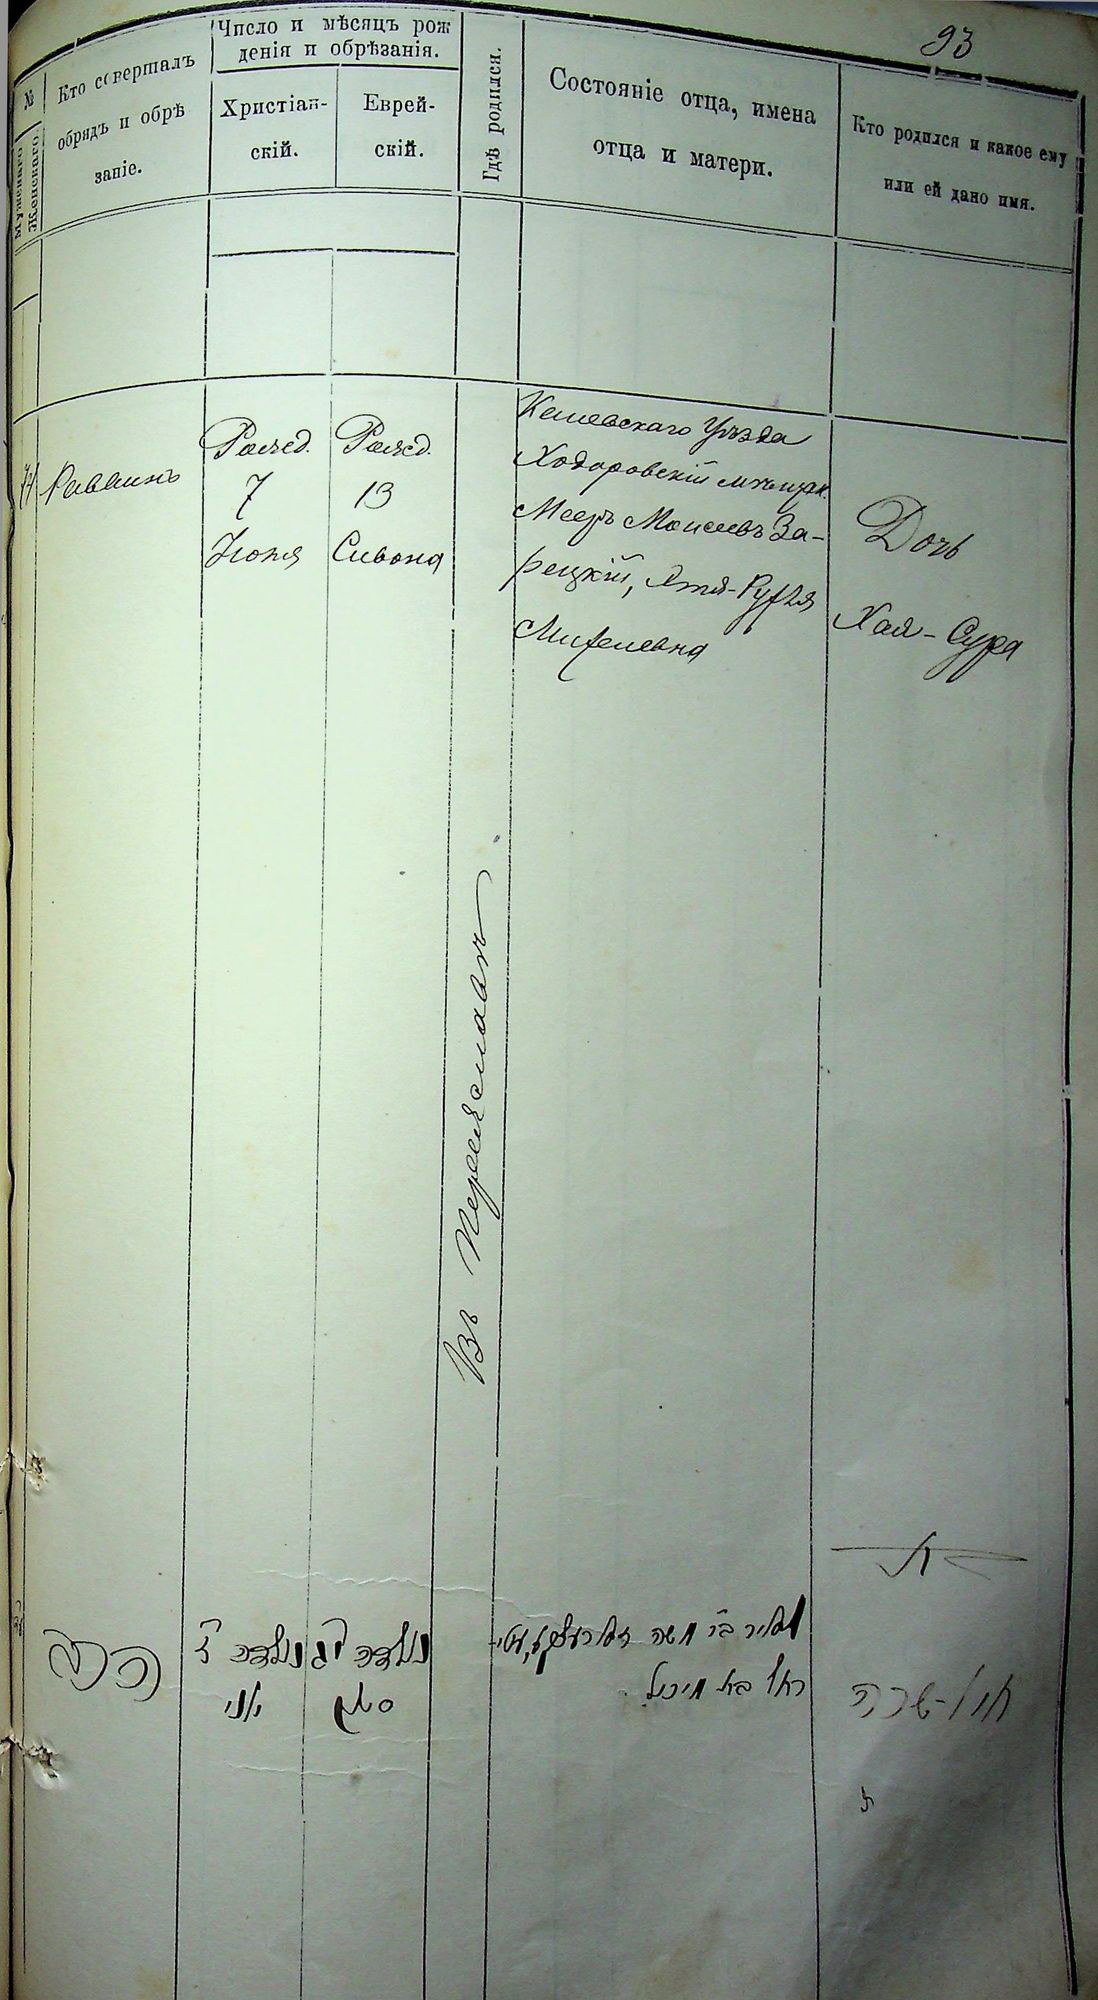 93
№
Мужскаго
Женскаго.
Кто совершалъ
обрядъ и обрѣ
заніе.
Число и мѣсяцъ рож
денія и обрѣзанія.
Христіан-
скій.
Еврей-
скій.
Гдѣ родился.
Состояніе отца, имена
отца и матери.
Кто родился и какое ему
или ей дано имя.
Раввинъ
Рожд.
7
Іюня
Рожд.
13
Сивона
Въ Переяславѣ
Кіевскаго Уѣзда
Ходоровскій мѣщан.
Мееръ Моисеевъ За-
рецкій, Этя-Рухля
Михелевна
Дочь
Хая-Сура
הרב
נולדה ז
יוני
נולדה יג
סיון
מאיר בר משה זארעצקי, עטי-
רחל בת מיכל
חי' שרה